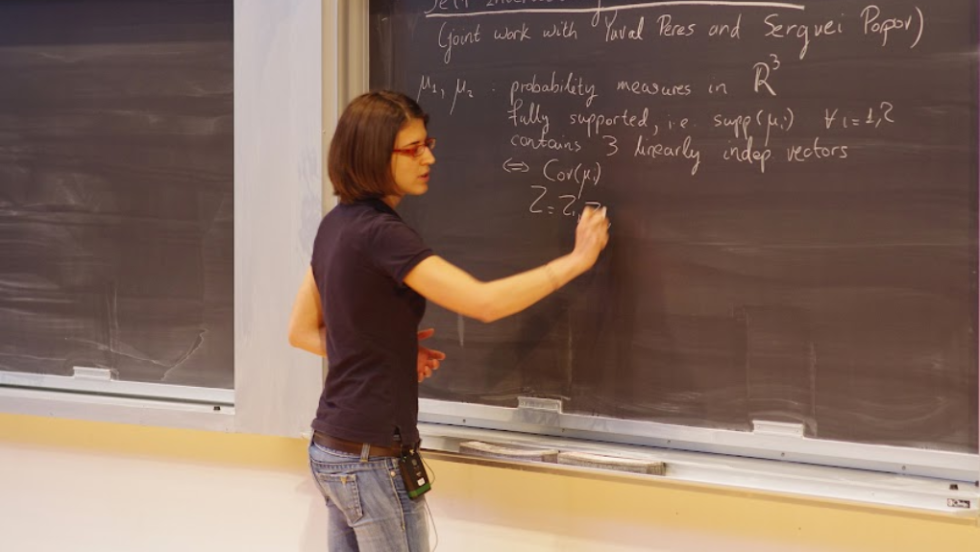 (joint work with Yuval Peres and Serguei Popov)
μ₁, μ₂ . probability measures in R³
fully supported, i.e. supp(μᵢ) ∀ i=1,2
contains 3 linearly indep vectors
⇔ Cov(μᵢ)